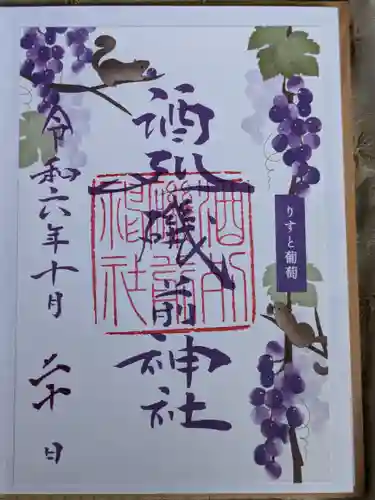 りすと葡萄
酒列磯前神社
酒列
磯前
神社
令和六年十月二十日